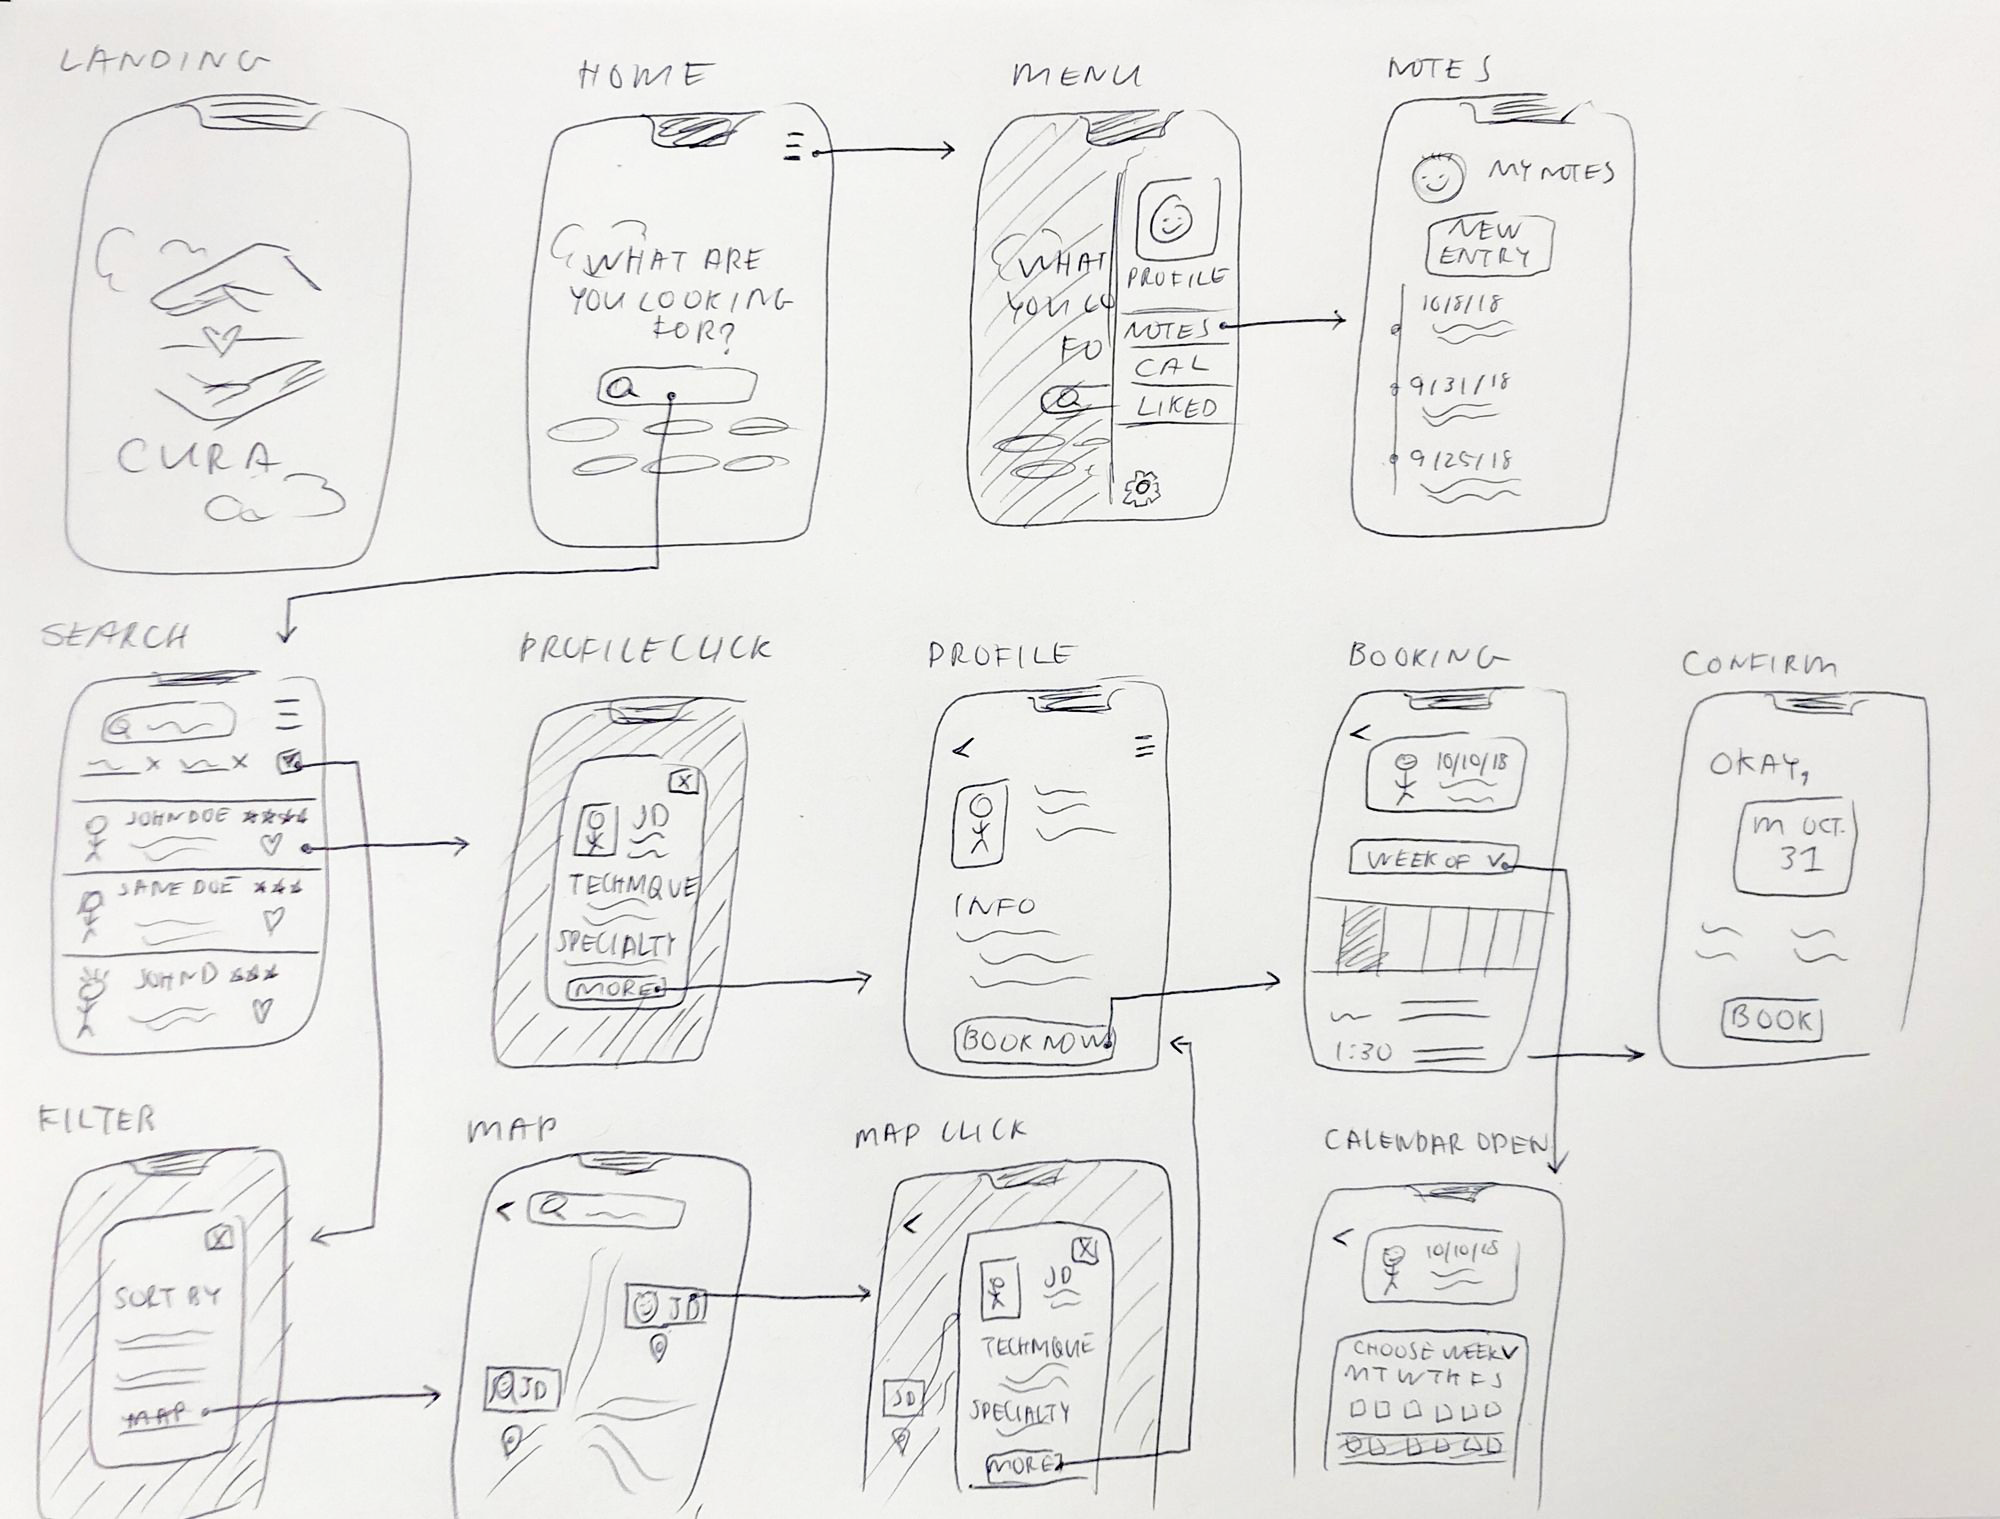 LANDING
CURA
HOME
WHAT ARE
YOU LOOKING
FOR?
MENU
WHAT
YOU LO
FO
PROFILE
NOTES
CAL
LIKED
NOTES
MY NOTES
NEW
ENTRY
10/8/18
9/31/18
9/25/18
SEARCH
JOHN DOE
JANE DOE
JOHN D
PROFILE CLICK
X
JD
TECHNIQUE
SPECIALTY
MORE
PROFILE
<
INFO
BOOK NOW
BOOKING
<
10/10/18
WEEK OF V
1:30
CONFIRM
OKAY,
M OCT.
31
BOOK
FILTER
X
SORT BY
MAP
MAP
<
JD
JD
MAP CLICK
<
X
JD
JD
TECHNIQUE
SPECIALTY
MORE
CALENDAR OPEN
<
10/10/18
CHOOSE WEEK V
M T W TH F S